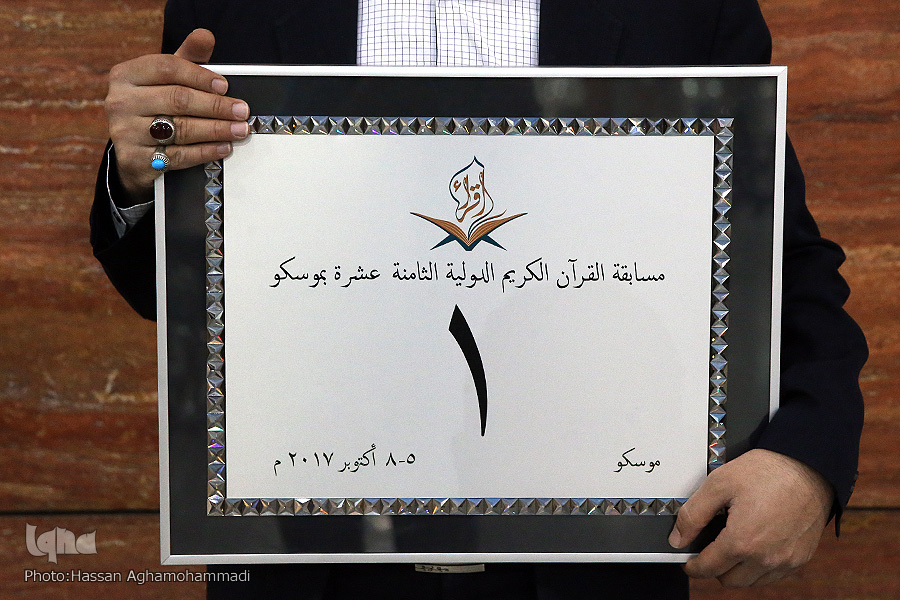 اقرأ
مسابقة القرآن الكريم الدولية الثامنة عشرة بموسكو
١
موسكو
٥-٨ أكتوبر ٢٠١٧ م
iqna
Photo:Hassan Aghamohammadi